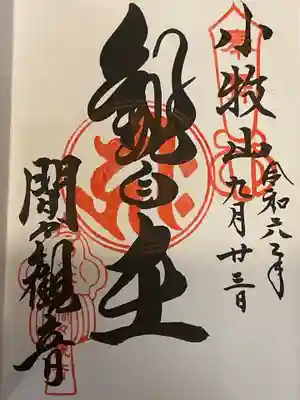 小牧山
令和六年
九月廿三日
観自在
間々観音